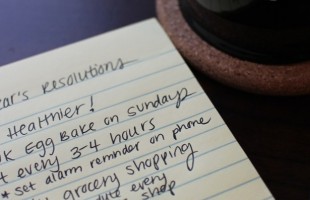 ear's Resolutions
Healthier!
Egg Bake on Sundays
every 3-4 hours
* set alarm reminder on phone
grocery shopping
every
shop